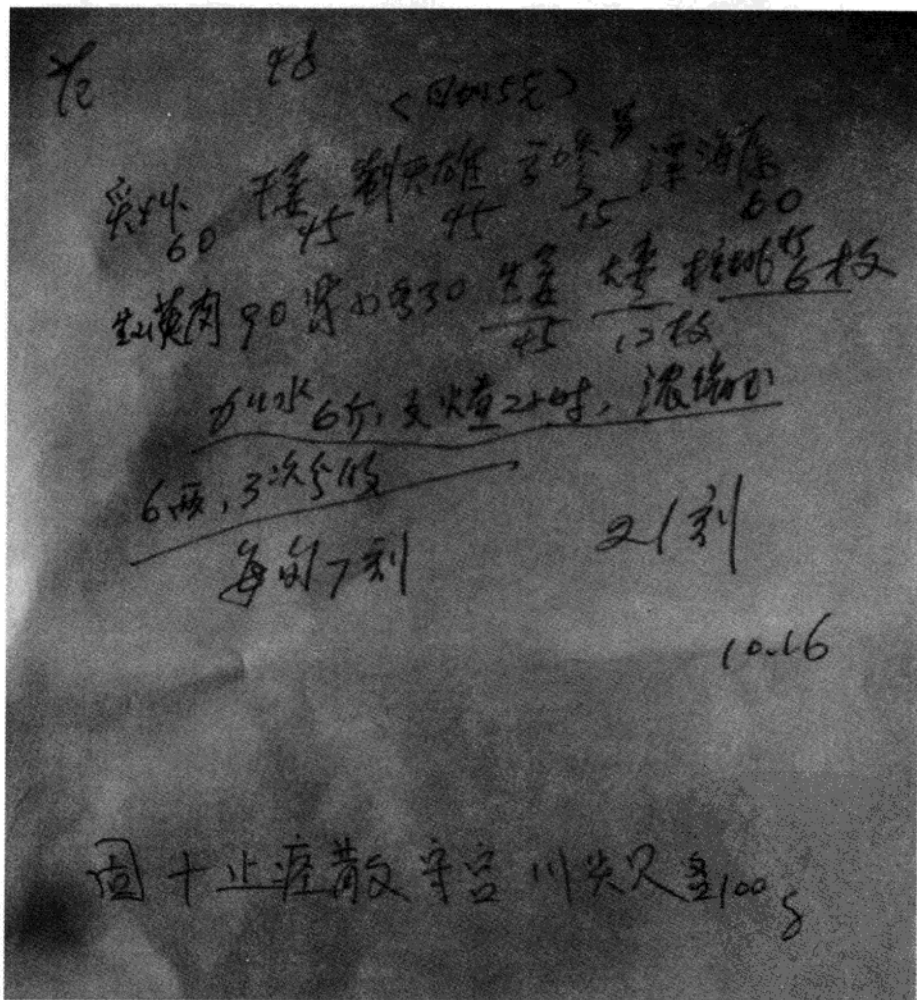 45
(日加5克)
炙草 60 干姜 45 制天雄 45 高丽参 15 漂海藻 60
生山萸肉 90 紫油桂 30 生姜 45 大枣 12枚 核桃 6枚
加水6斤,文火煮2小时,浓缩至
6两,3次分服
每旬7剂 21剂
10.16
固本止痉散 守宫 川尖贝各100g